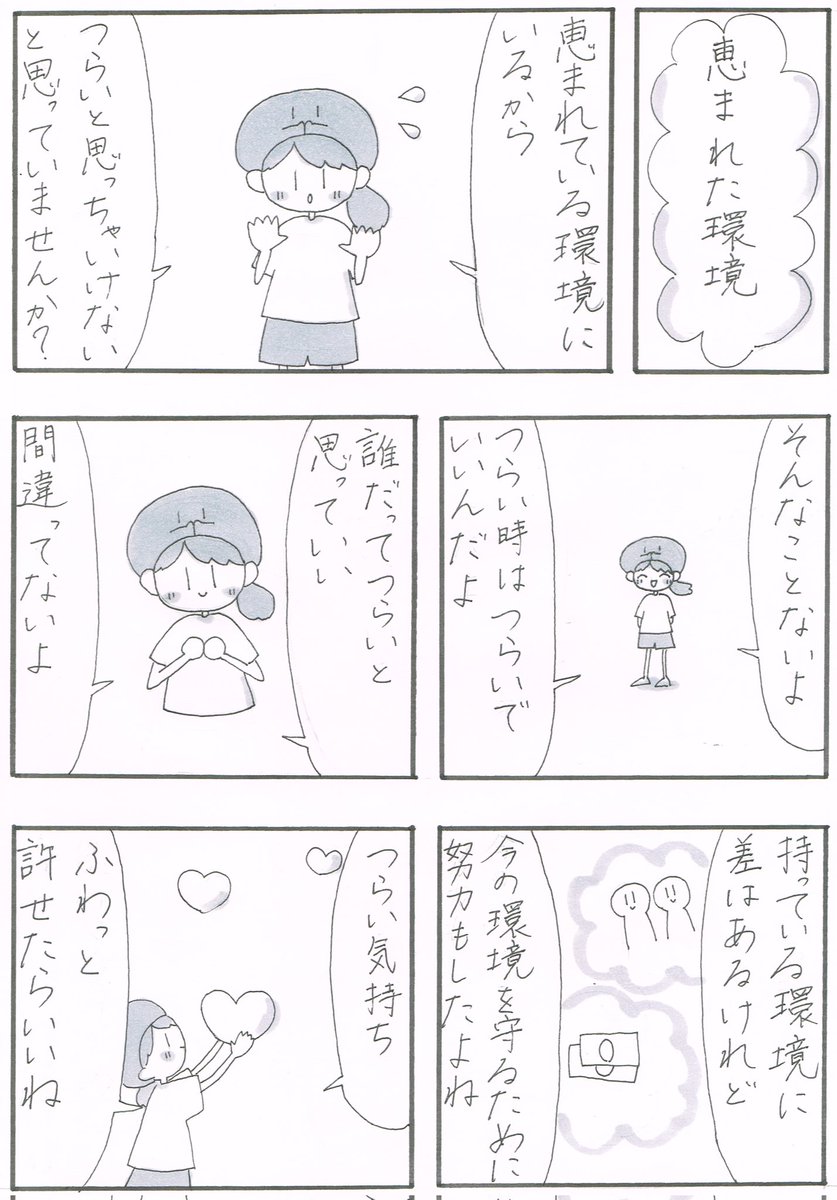 恵まれた環境
恵まれている環境に
いるから
つらいと思っちゃいけない
と思っていませんか？
そんなことないよ
つらい時はつらいで
いいんだよ
誰だってつらいと
思っていい
間違ってないよ
持っている環境に
差はあるけれど
今の環境を守るために
努力もしたよね
つらい気持ち
ふわっと
許せたらいいね